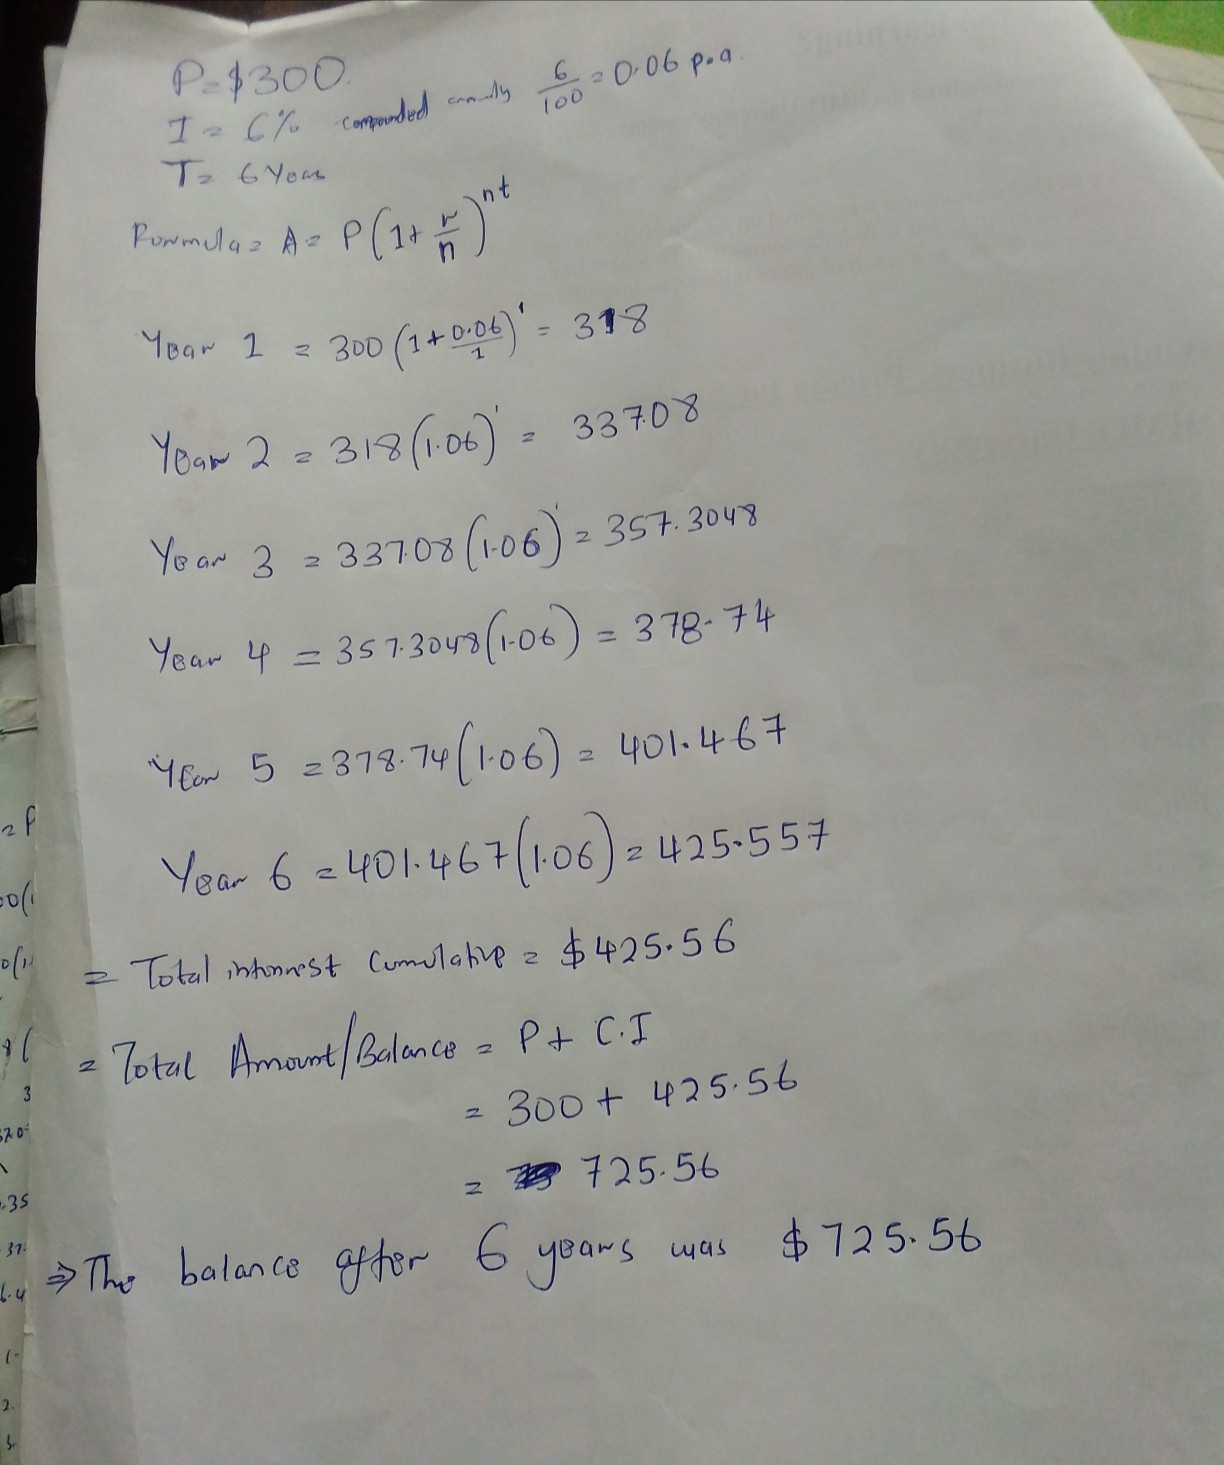 P=$300.
I = 6% compounded annually 6/100 = 0.06 p.a.
T= 6 Years
Formula= A= P(1+ r/n)^nt
Year 1 = 300 (1+ 0.06/1)^1 = 318
Year 2 = 318 (1.06)^1 = 337.08
Year 3 = 337.08 (1.06)^1 = 357.3048
Year 4 = 357.3048 (1.06) = 378.74
Year 5 = 378.74 (1.06) = 401.467
Year 6 = 401.467 (1.06) = 425.557
= Total interest Cumulative = $425.56
= Total Amount/Balance = P+ C.I
= 300 + 425.56
= 725.56
⇒ The balance after 6 years was $725.56